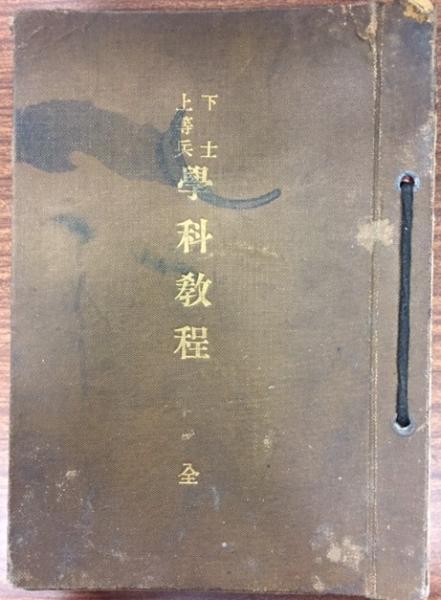 下士
上等兵
學科教程
全